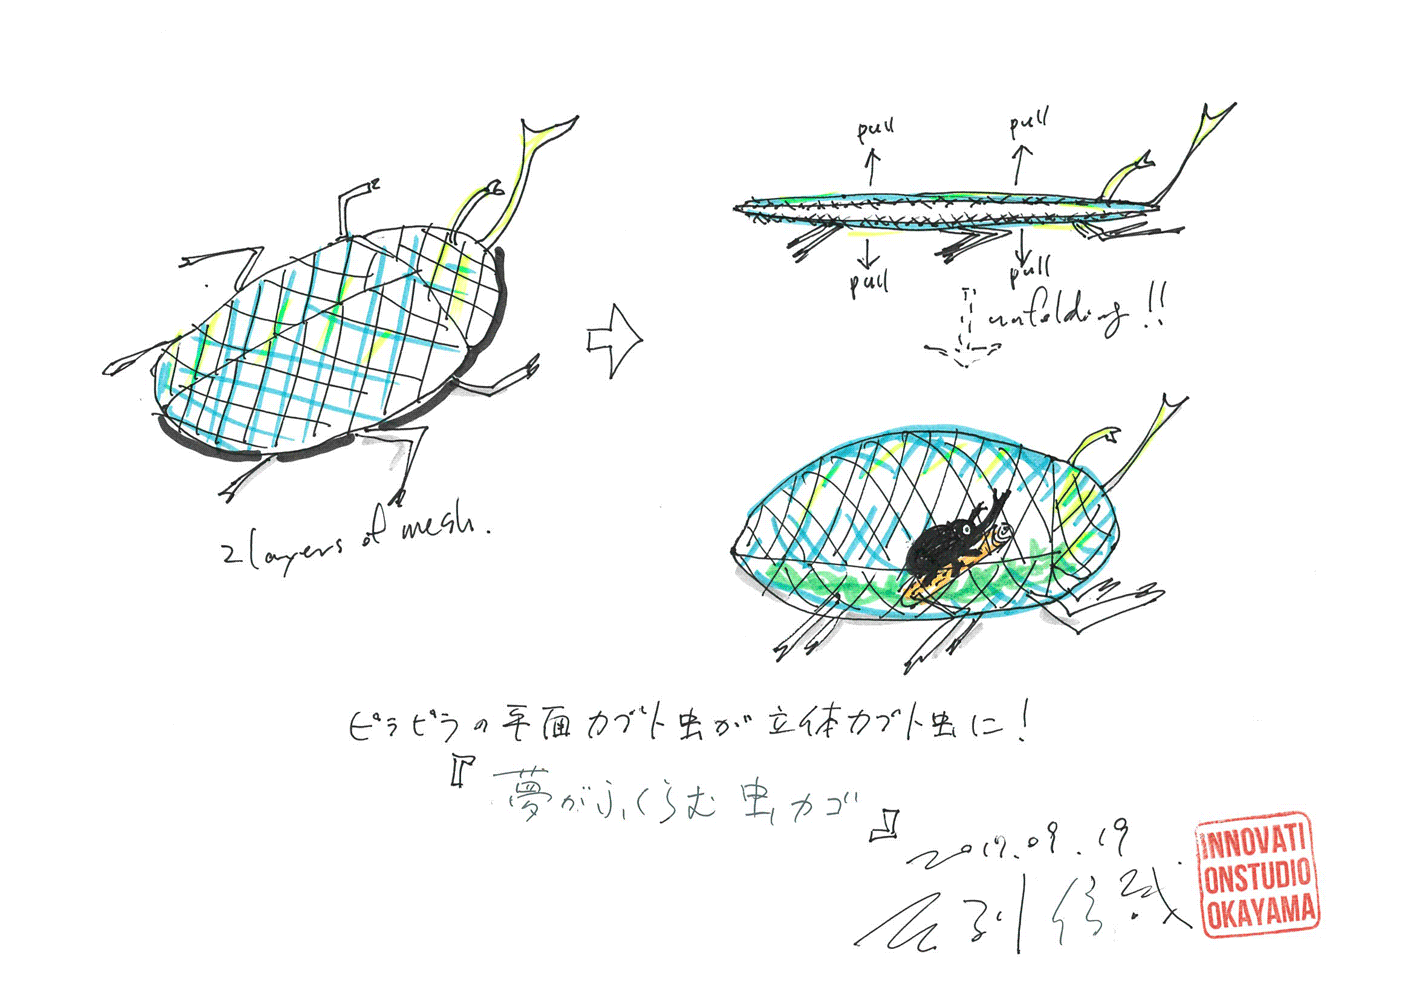 2 layers of mesh.
pull
pull
pull
pull
unfolding!!
ピラピラの平面カブト虫が立体カブト虫に!
『夢がふくらむ虫カゴ』
INNOVATI
ONSTUDIO
OKAYAMA